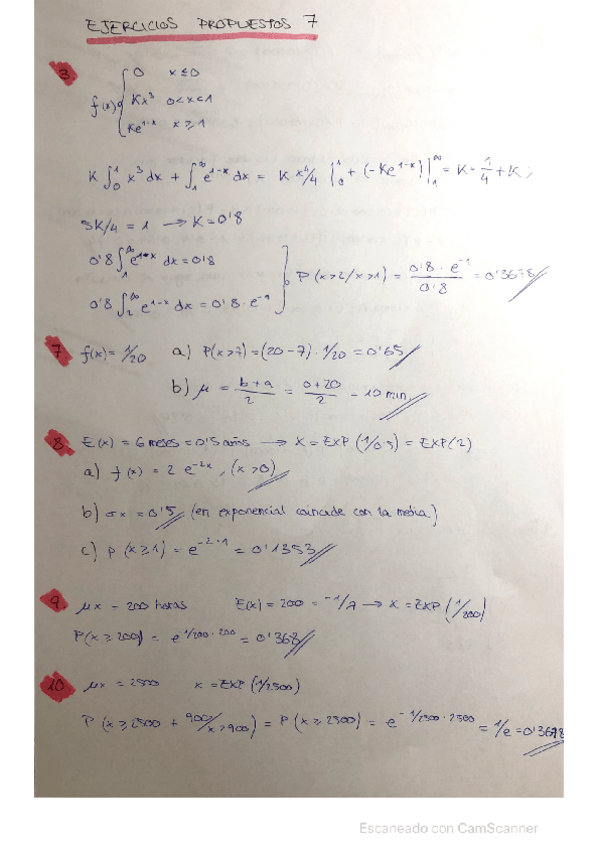 EJERCICIOS PROPUESTOS 7
3. f(x) { 0 x≤0
Kx³ 0<x<1
Ke^(1-x) x≥1
K ∫₀¹ x³ dx + ∫₁^∞ e^(1-x) dx = K x⁴/4 |₀¹ + (-Ke^(1-x)) |₁^∞ = K · 1/4 + K ;
5K/4 = 1 → K = 0'8
0'8 ∫₁^∞ e^(1-x) dx = 0'8
0'8 ∫₂^∞ e^(1-x) dx = 0'8 · e^(-1)
P(x>2/x>1) = 0'8 · e^(-1) / 0'8 = 0'3678
7 f(x) = 1/20 a) P(x>7) = (20-7) · 1/20 = 0'65
b) μ = (b+a)/2 = (0+20)/2 = 10 min
8 E(x) = 6 meses = 0'5 años → X = EXP (1/0'5) = EXP(2)
a) f(x) = 2 e^(-2x), (x>0)
b) σx = 0'5 (en exponencial coincide con la media)
c) P(x≥1) = e^(-2·1) = 0'1353
9. μx = 200 horas E(x) = 200 = -1/λ → X = EXP (1/200)
P(x≥200) = e^(1/200 · 200) = 0'368
10 μx = 2500 x = EXP (1/2500)
P(x≥2500 + 900/x>900) = P(x≥2500) = e^(-1/2500 · 2500) = 1/e = 0'3678
Escaneado con CamScanner